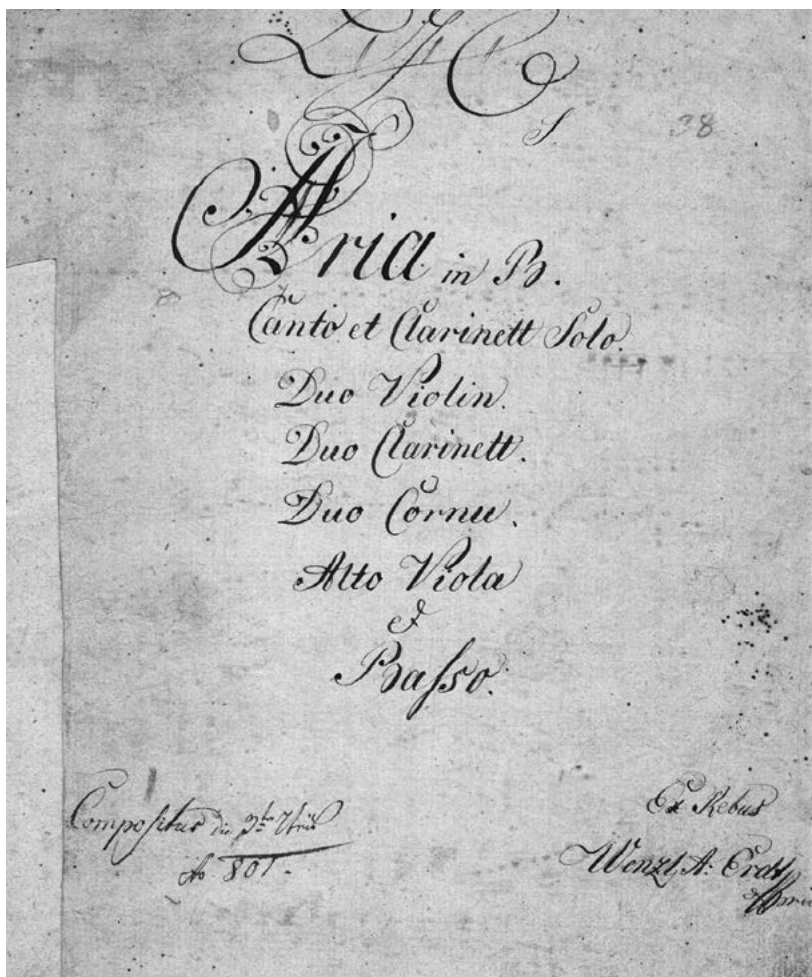 38
Aria in B.
Canto et Clarinett Solo.
Duo Violin.
Duo Clarinett.
Duo Cornu.
Alto Viola
et
Basso.
Compositus die 3tia 7bris
Ao 801.
Ex Rebus
Wenzl A: